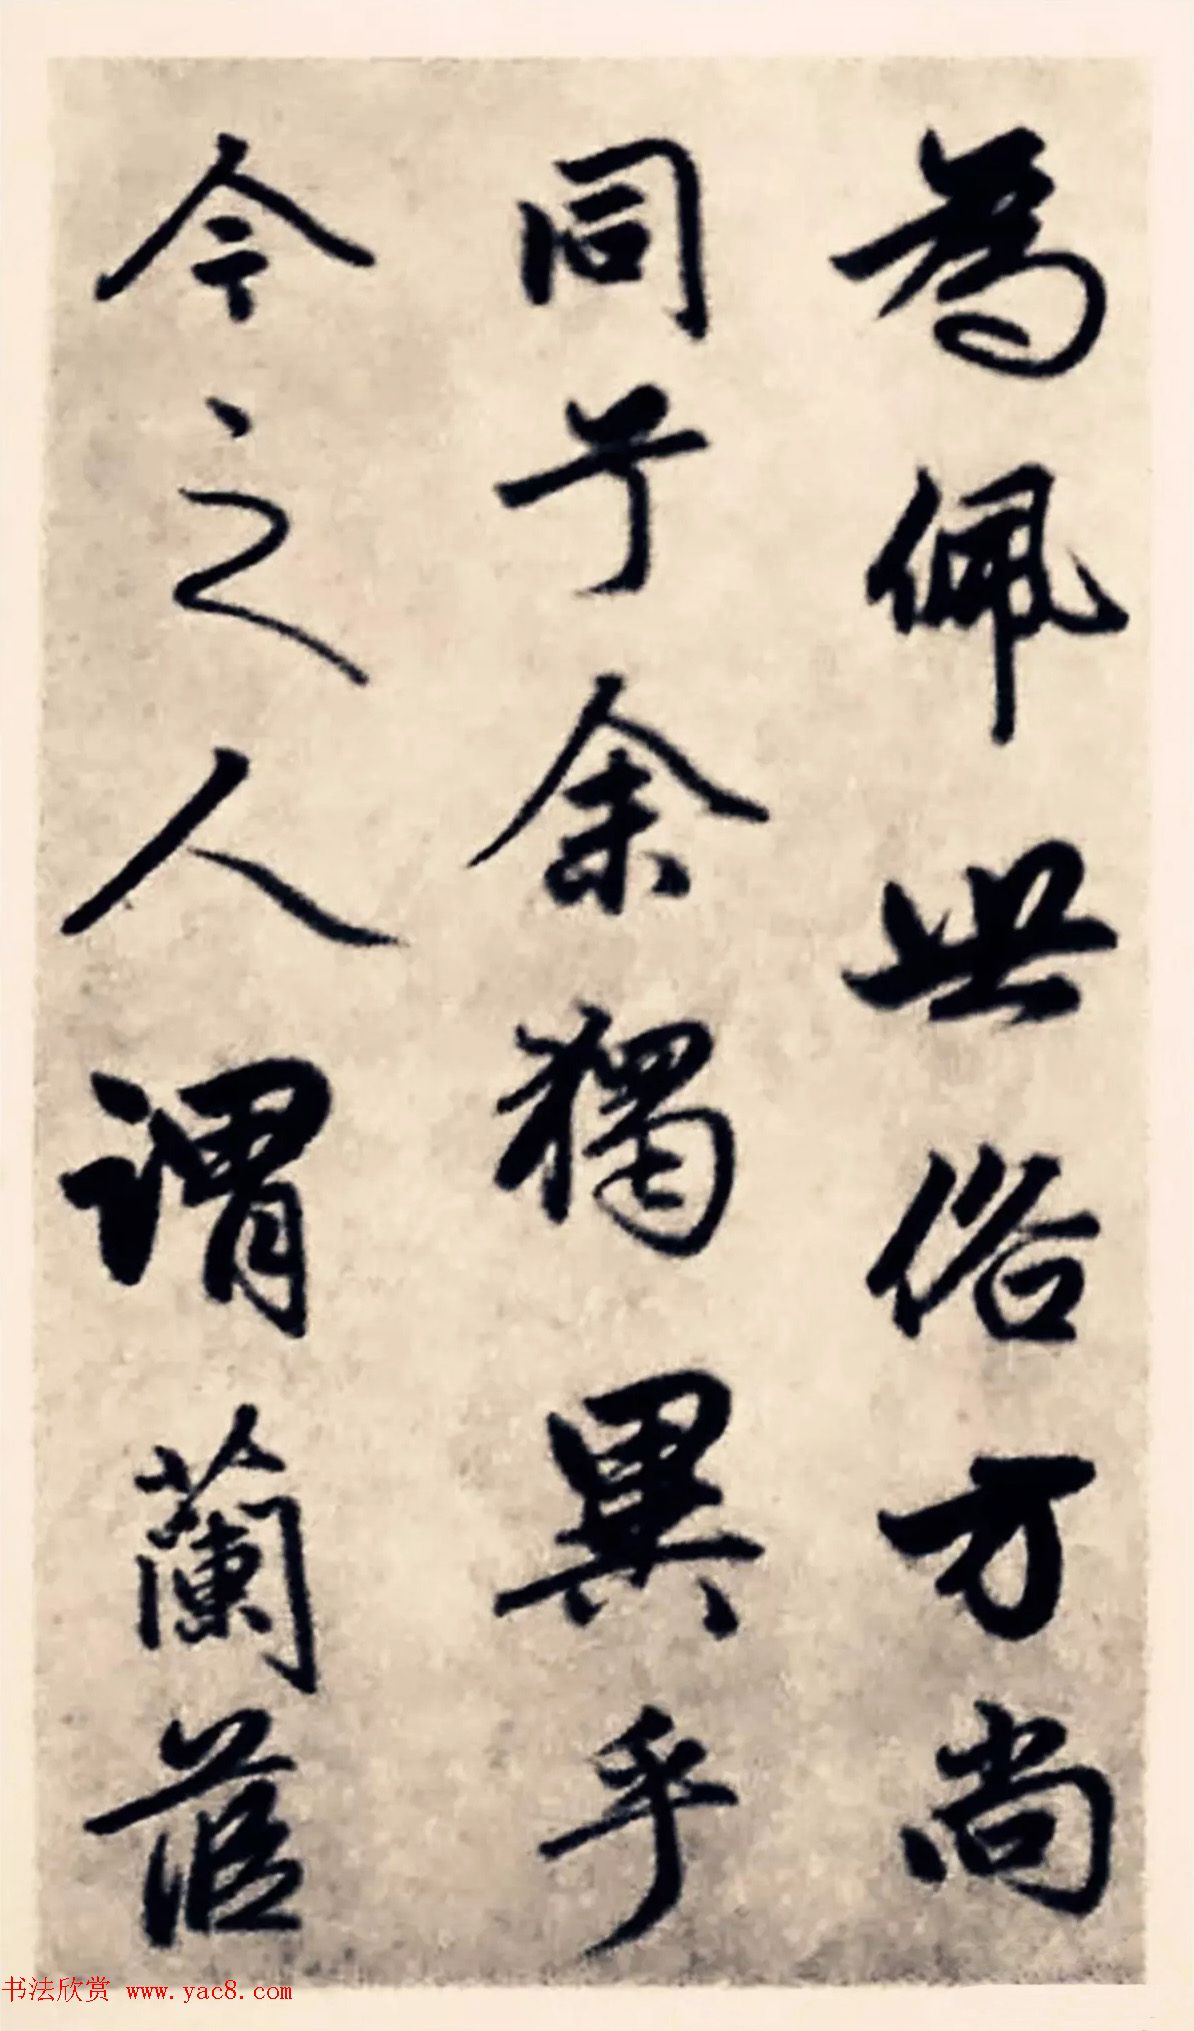 為佩世俗方尚
同兮余獨異乎
今之人謂蘭茝
书法欣赏 www.yac8.com